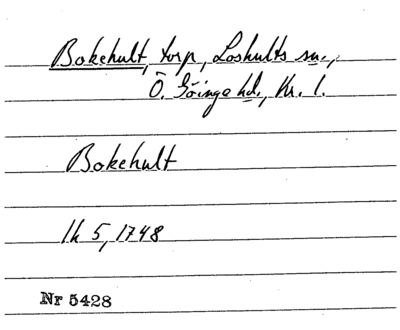 Bokehult, torp, Loshults sn.,
Ö. Göinge hd., Kr. l.
Bokehult
lk 5, 1748
Nr 5428